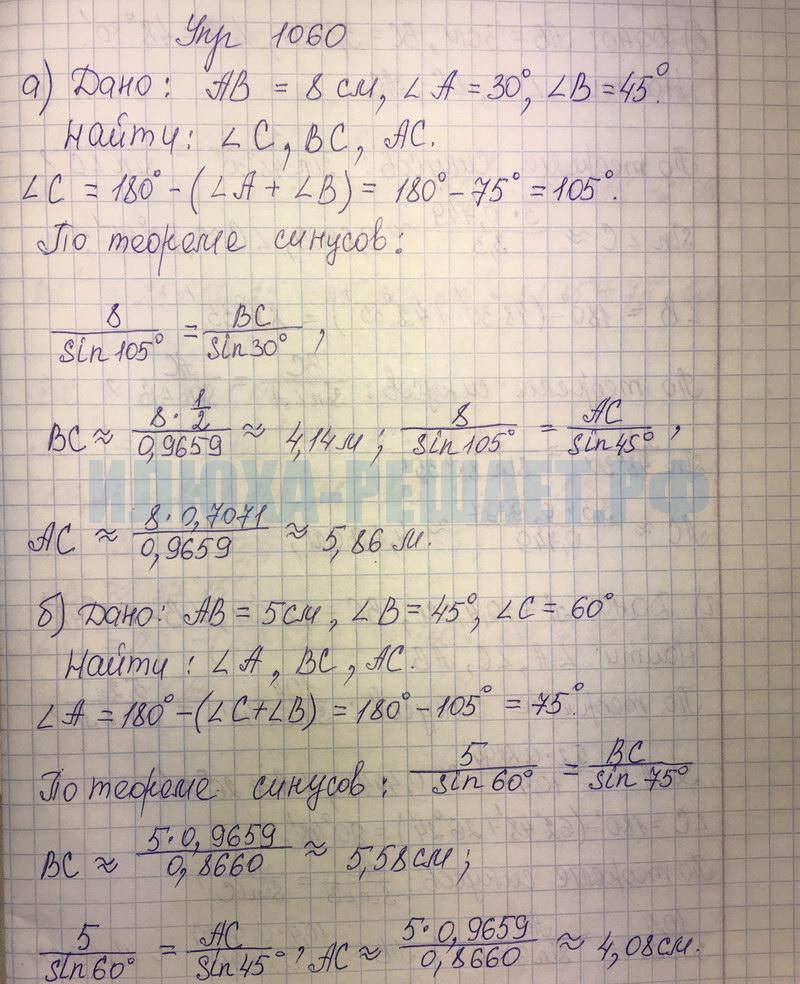 Упр 1060
а) Дано: AB = 8 см, ∠A = 30°, ∠B = 45°.
Найти: ∠C, BC, AC.
∠C = 180° - (∠A + ∠B) = 180° - 75° = 105°.
По теореме синусов:
8/sin105° = BC/sin30°,
BC ≈ 8·1/2 / 0,9659 ≈ 4,14м; 8/sin105° = AC/sin45°,
ИЛЮХА-РЕШАЕТ.РФ
AC ≈ 8·0,7071/0,9659 ≈ 5,86 м.
б) Дано: AB = 5см, ∠B = 45°, ∠C = 60°
Найти: ∠A, BC, AC.
∠A = 180° - (∠C + ∠B) = 180° - 105° = 75°.
По теореме синусов: 5/sin60° = BC/sin75°
BC ≈ 5·0,9659/0,8660 ≈ 5,58см;
5/sin60° = AC/sin45°, AC ≈ 5·0,9659/0,8660 ≈ 4,08см.